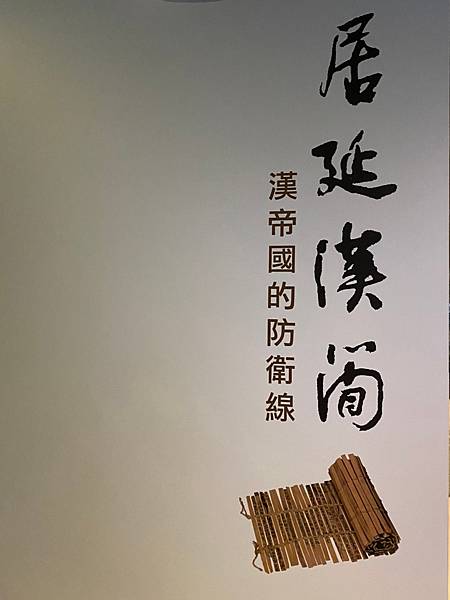 居延漢簡
漢帝國的防衛線